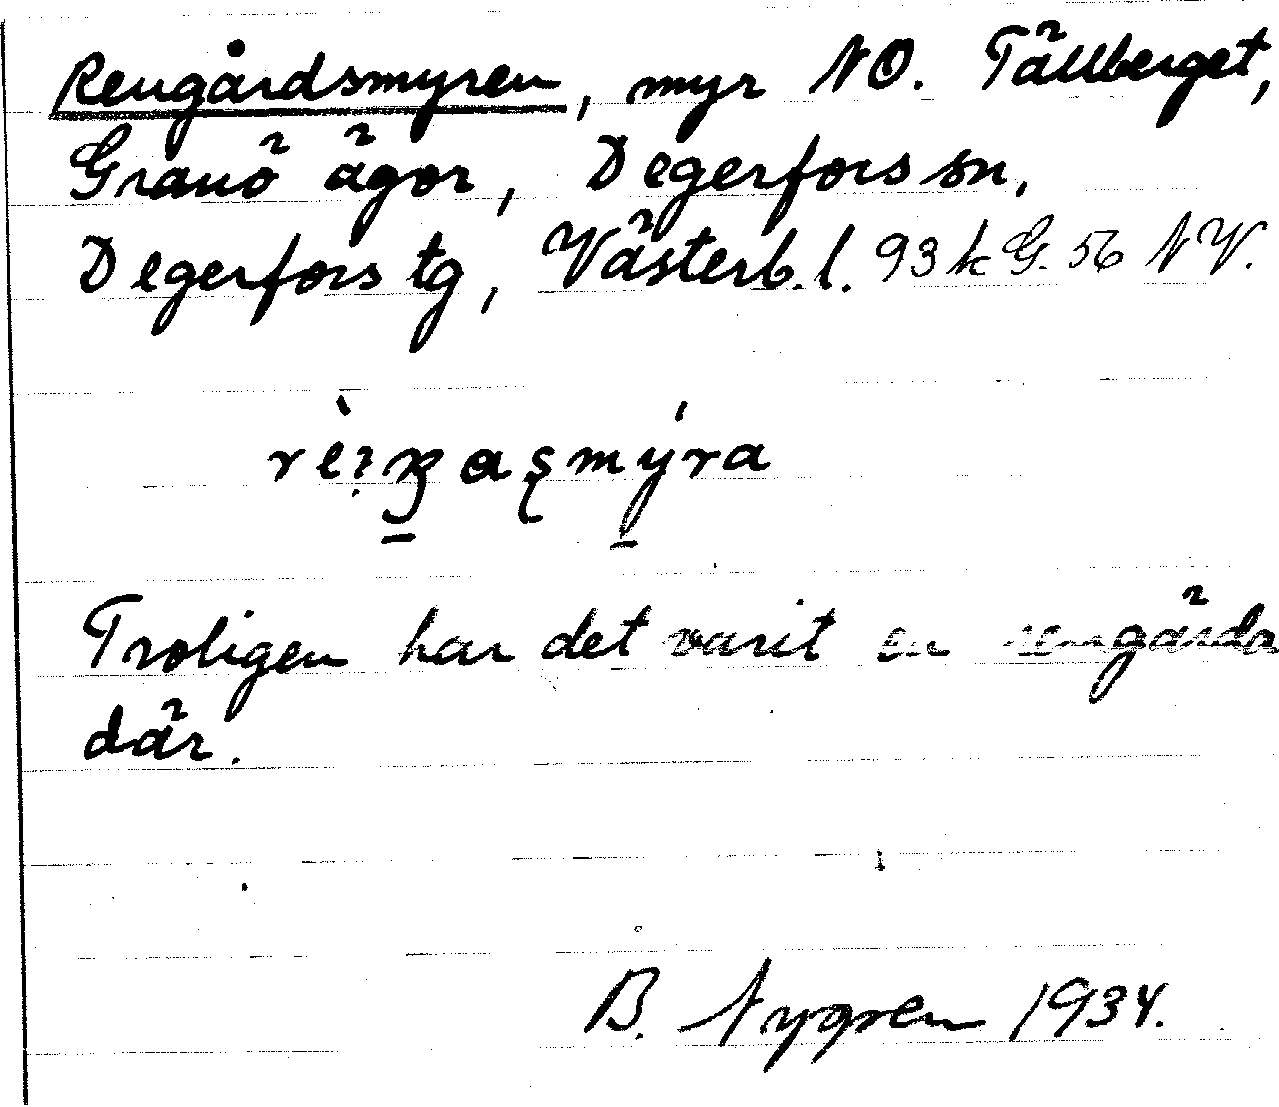 Rengårdsmyren, myr NO. Tällberget,
Granö ägor, Degerfors sn,
Degerfors tg, Västerb. l. 93 k G. 56 NV.
Troligen har det varit en rengärda
där.
B. Nygren 1934.